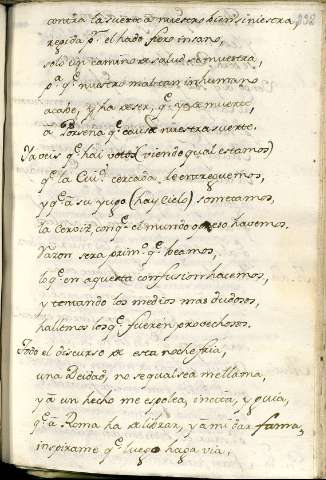 232
contra la suerte a nuestro bien siniestra,
regida pr. el hado fiero insano,
solo un camino de salud se muestra,
pa. qe. nuestro mal tan inhumano
acabe, y ha de ser, qe. ya se muerte,
a Porsena qe. causa nuestra suerte.
Ya veis qe. hai votos (viendo qual estamos)
qe. la Ciud. cercada le entreguemos,
y qe. a su yugo (hay Cielo) sometamos,
la Cerviz, con qe. el mundo opreso havemos.
Razon sera prim.º qe. veamos,
lo qe. en aquesta confusion hacemos,
y tentando los medios mas dudosos,
hallemos los qe. fueren provechosos.
Todo el discurso de esta noche fria,
una Deidad, no se qual sea me llama,
y a un hecho me espolea, incita, y guia,
qe. a Roma ha de librar, y a mi dar fama,
inspirame qe. luego haga via,